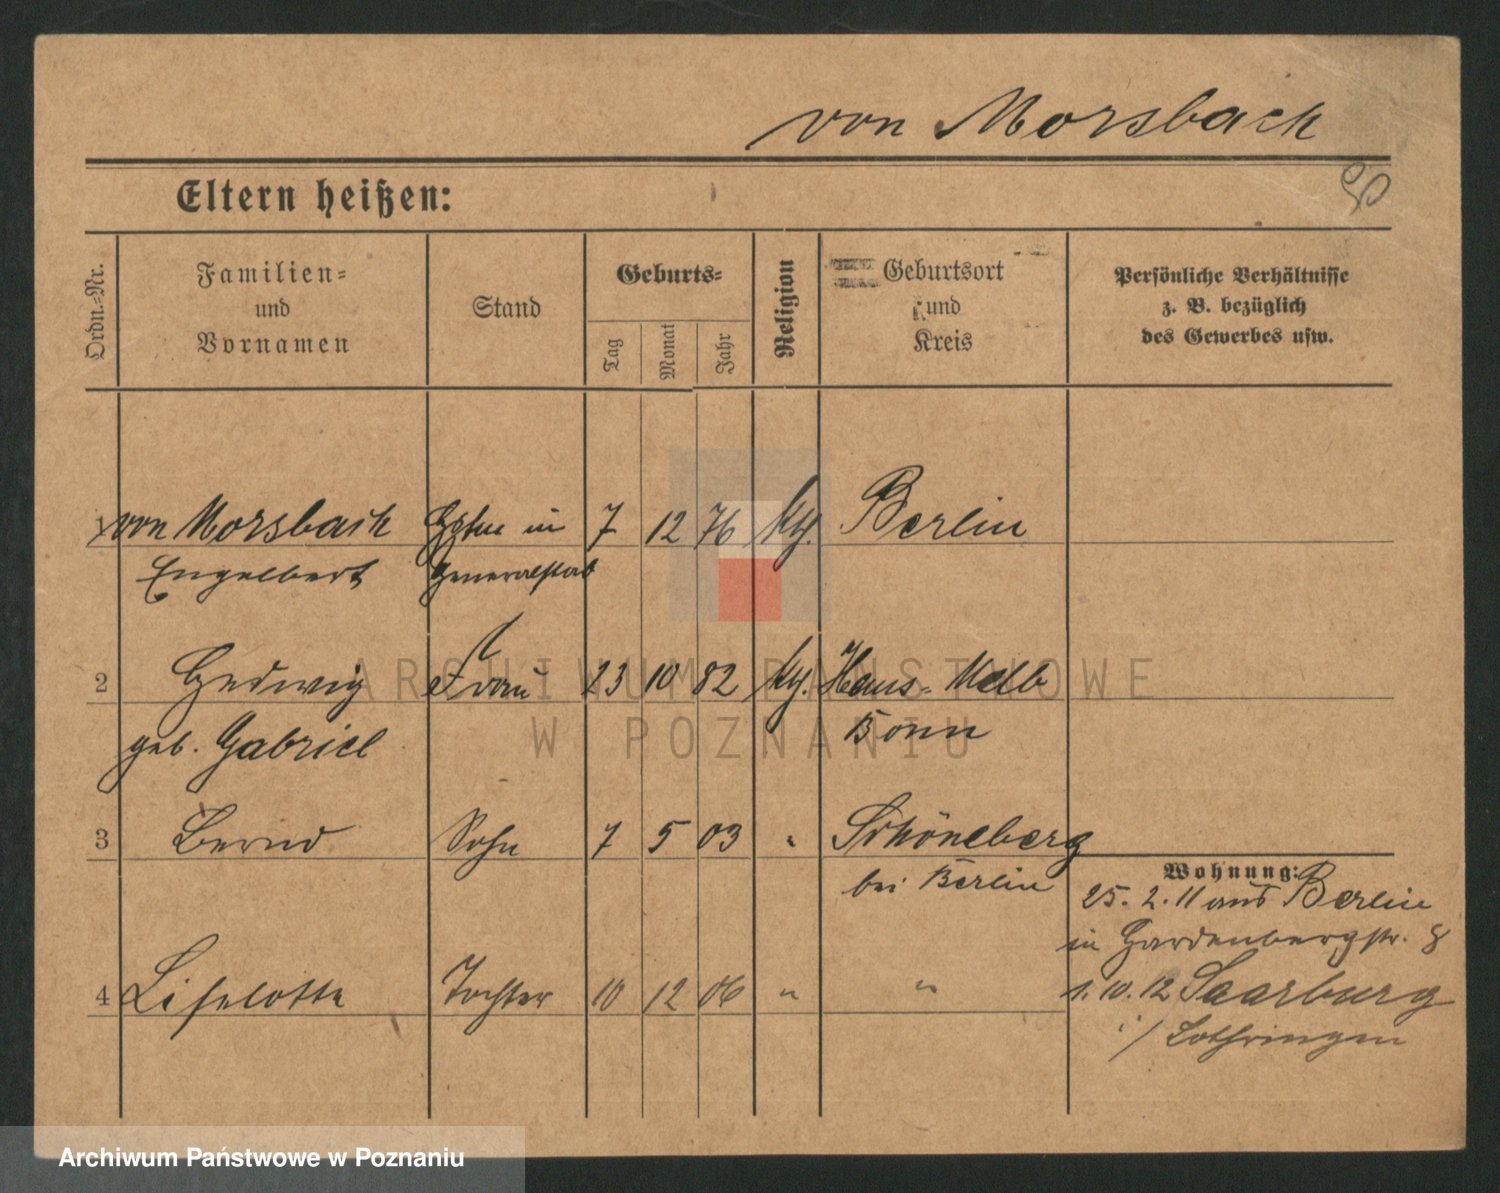 von Morsbach
Eltern heißen:
Ordn.-Nr.
Familien-
und
Vornamen
Stand
Geburts-
Tag
Monat
Jahr
Religion
Geburtsort
und
Kreis
Persönliche Verhältnisse
z. B. bezüglich
des Gewerbes usw.
1 von Morsbach Hptm im 7 12 76 Berlin
Engelbert Generalstab
2 Hedwig Frau 23 10 82 Haus-Melb
geb. Gabriel Bonn
3 Bernd Sohn 7 5 03 " Schöneberg
bei Berlin
4 Liselotte Tochter 10 12 06 " "
Wohnung:
25. 2. 11 aus Berlin
in Hardenbergstr. 8
1. 10. 12 Saarburg
i/ Lothringen
ARCHIWUM PAŃSTWOWE
W POZNANIU
Archiwum Państwowe w Poznaniu